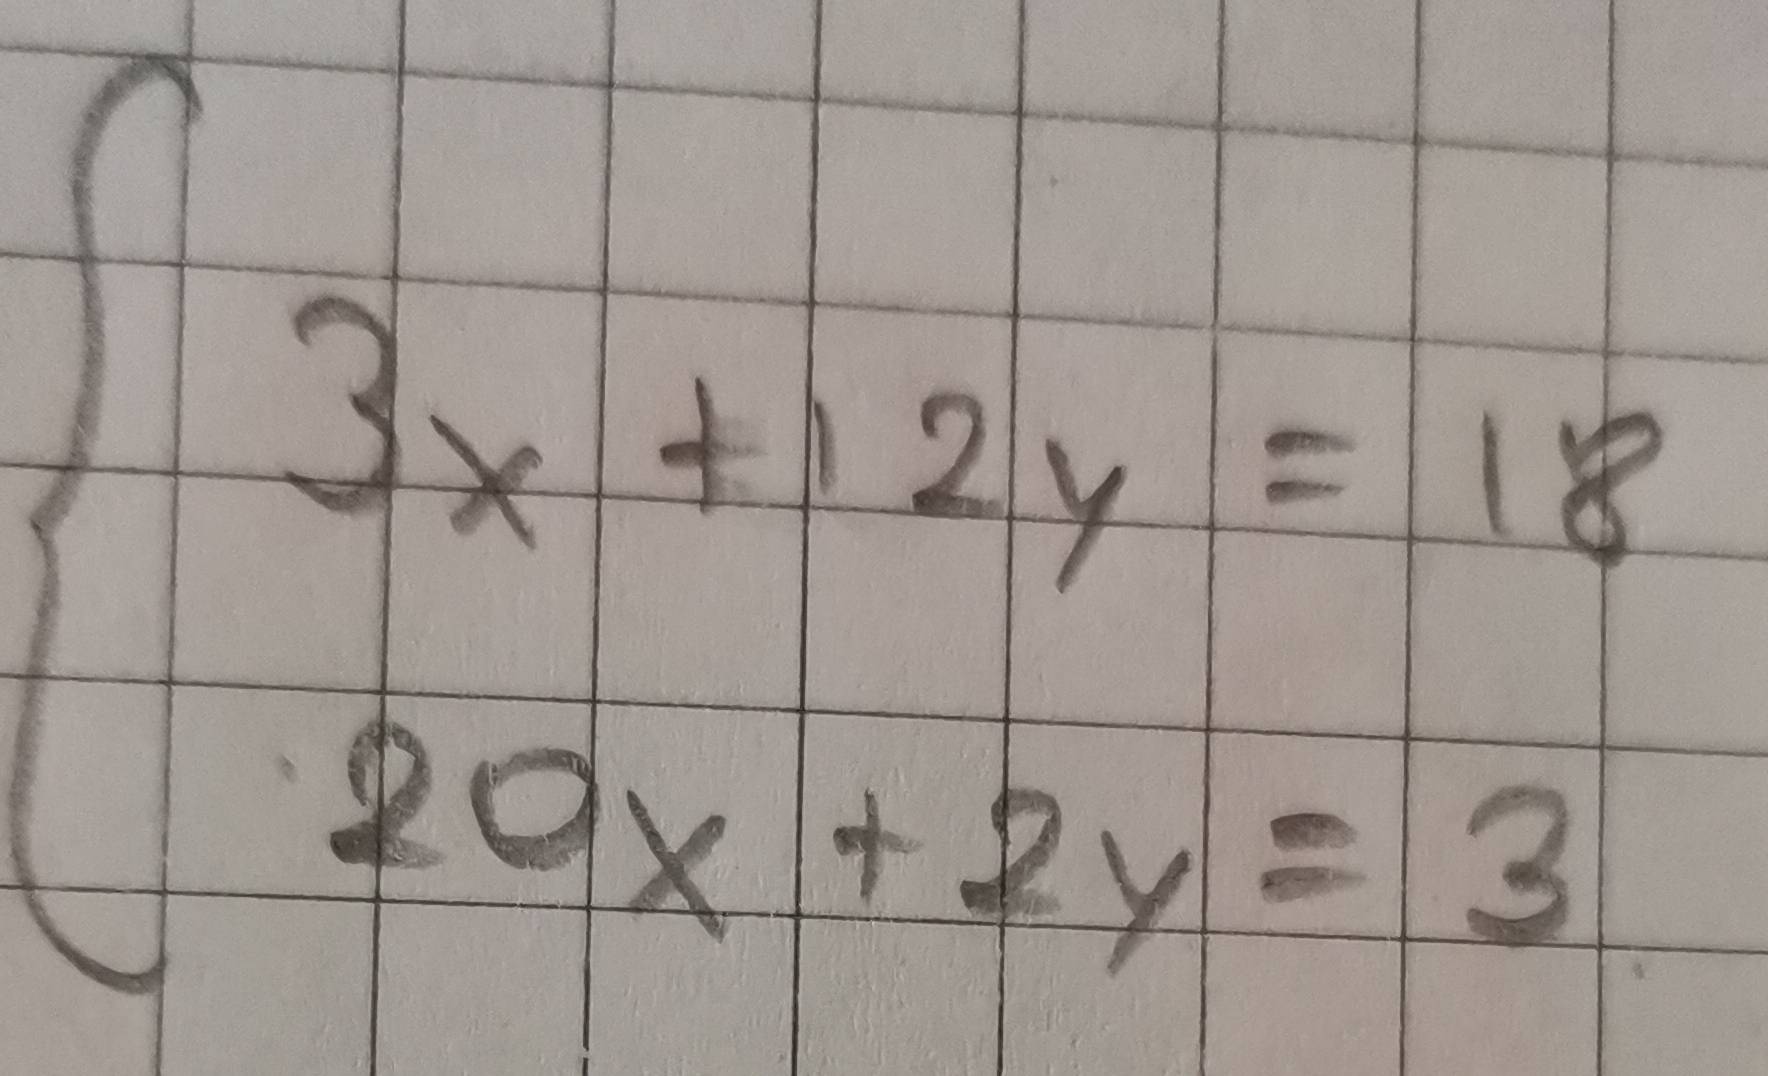 3x + 12y = 18
20x + 2y = 3